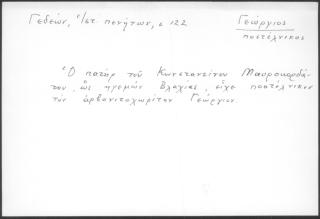 Γεδεών, Ἱστ. πενήτων, σ 122
Γεώργιος
ποστέλνικος
Ὁ πατήρ τοῦ Κωνσταντίνου Μαυροκορδά-
του, ὡς ηγεμών Βλαχίας, εἶχε ποστέλνικον
τόν ἀρβανιτοχωρίτην Γεώργιον.